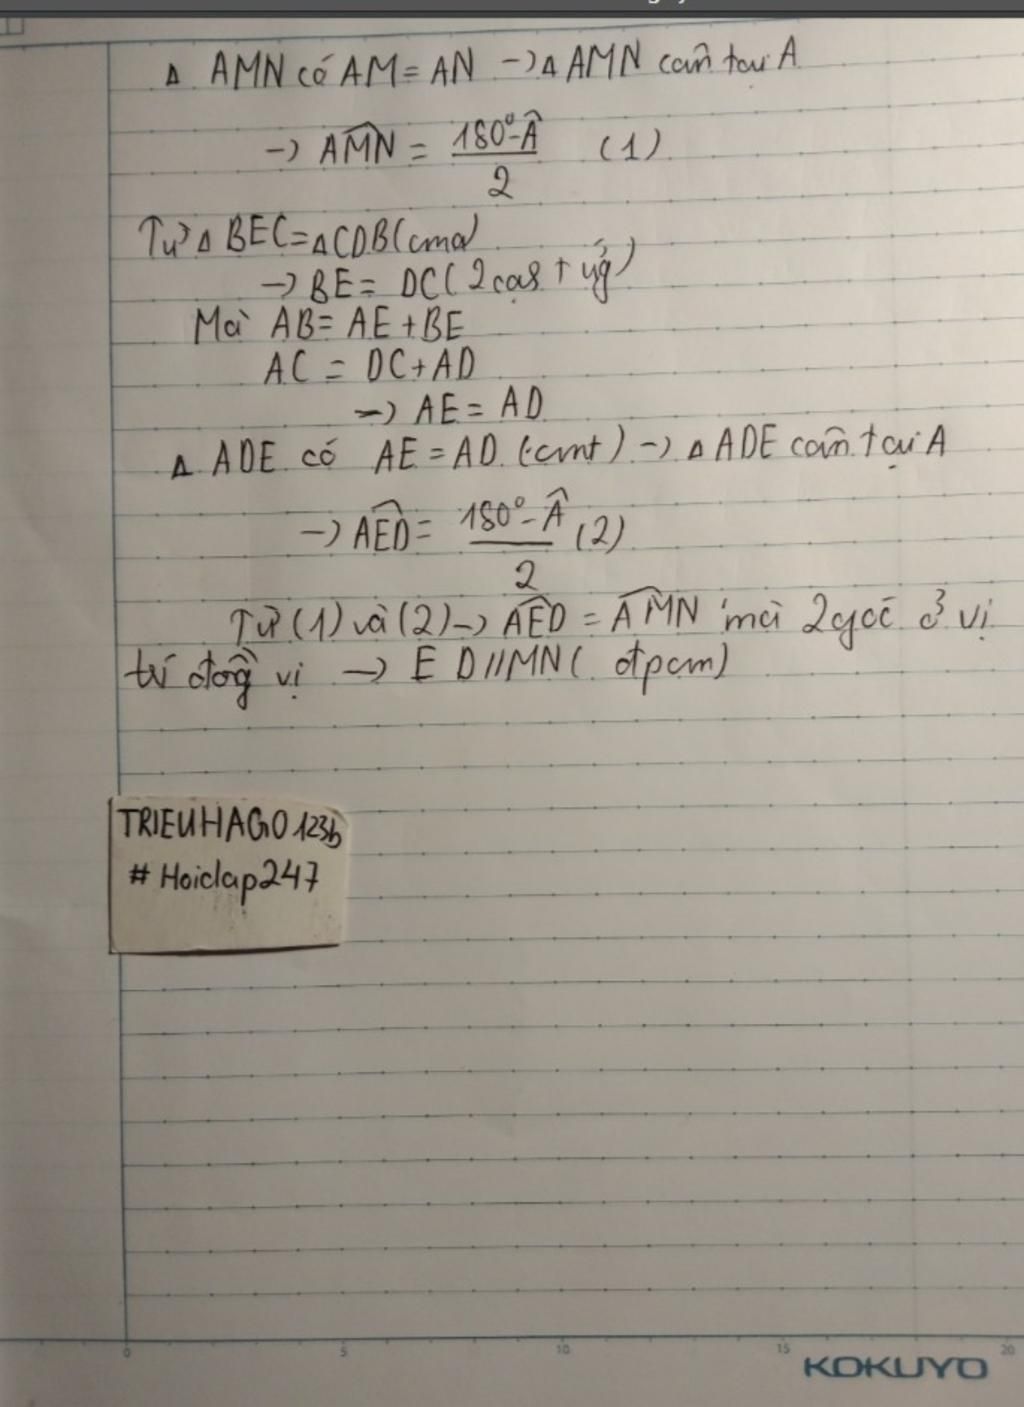 Δ AMN có AM = AN -> Δ AMN cân tại A
-> AMN = 180° - Â / 2 (1)
Từ Δ BEC = Δ CDB (cma)
-> BE = DC (2 cạs t ứg)
Mà AB = AE + BE
AC = DC + AD
-> AE = AD
Δ ADE có AE = AD (cmt) -> Δ ADE cân tại A
-> AED = 180° - Â / 2 (2)
Từ (1) và (2) -> AED = AMN mà 2 góc ở vị
trí đồg vị -> ED // MN (đpcm)
TRIEUHAGO123b
# Hoidap247
0 5 10 15 20
KOKUYO